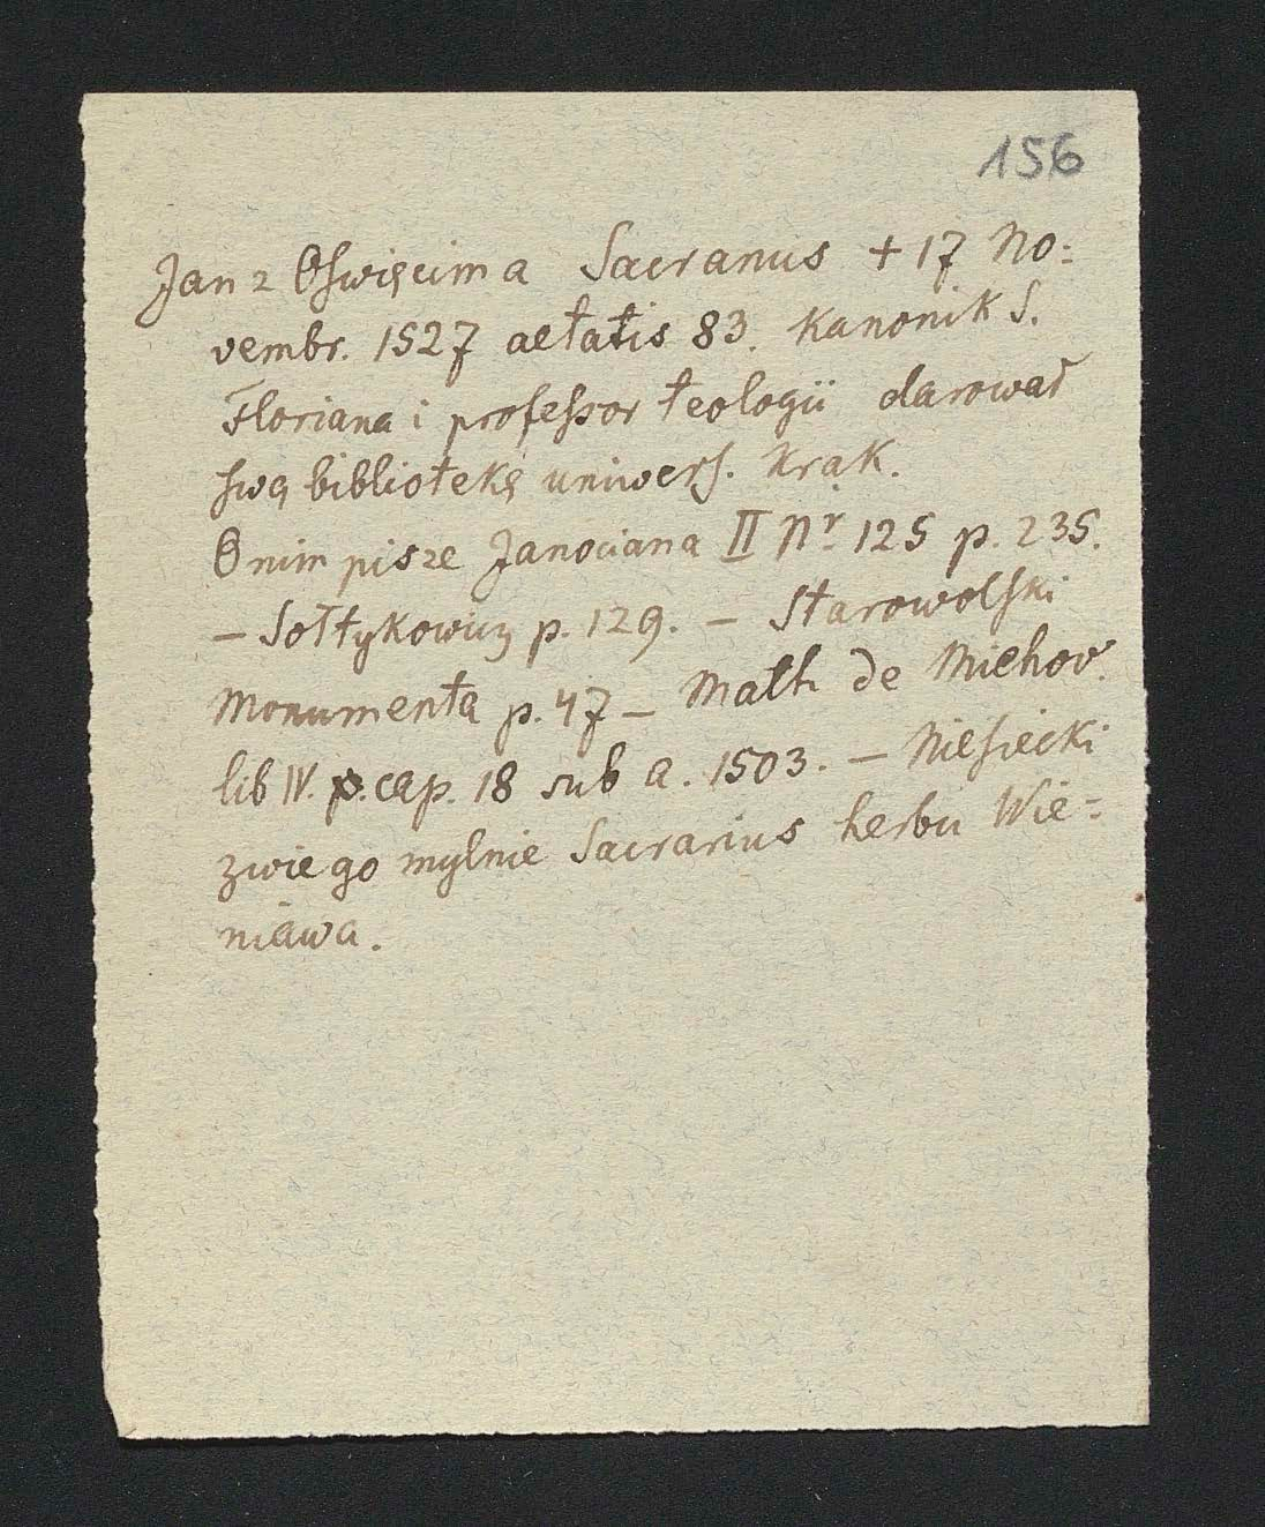 156
Jan z Oświęcima Sacranus + 17 No:
vembr. 1527 aetatis 83. Kanonik S.
Floriana i professor teologii darował
swą bibliotekę uniwers. Krak.
O nim pisze Janociana II Nr. 125 p. 235.
– Sołtykowicz p. 129. – Starowolski
Monumenta p. 47 – Math de Miechov.
lib IV. p. cap. 18 sub a. 1503. – Niesiecki
zwie go mylnie Sacrarius herbu Wie=
niawa.